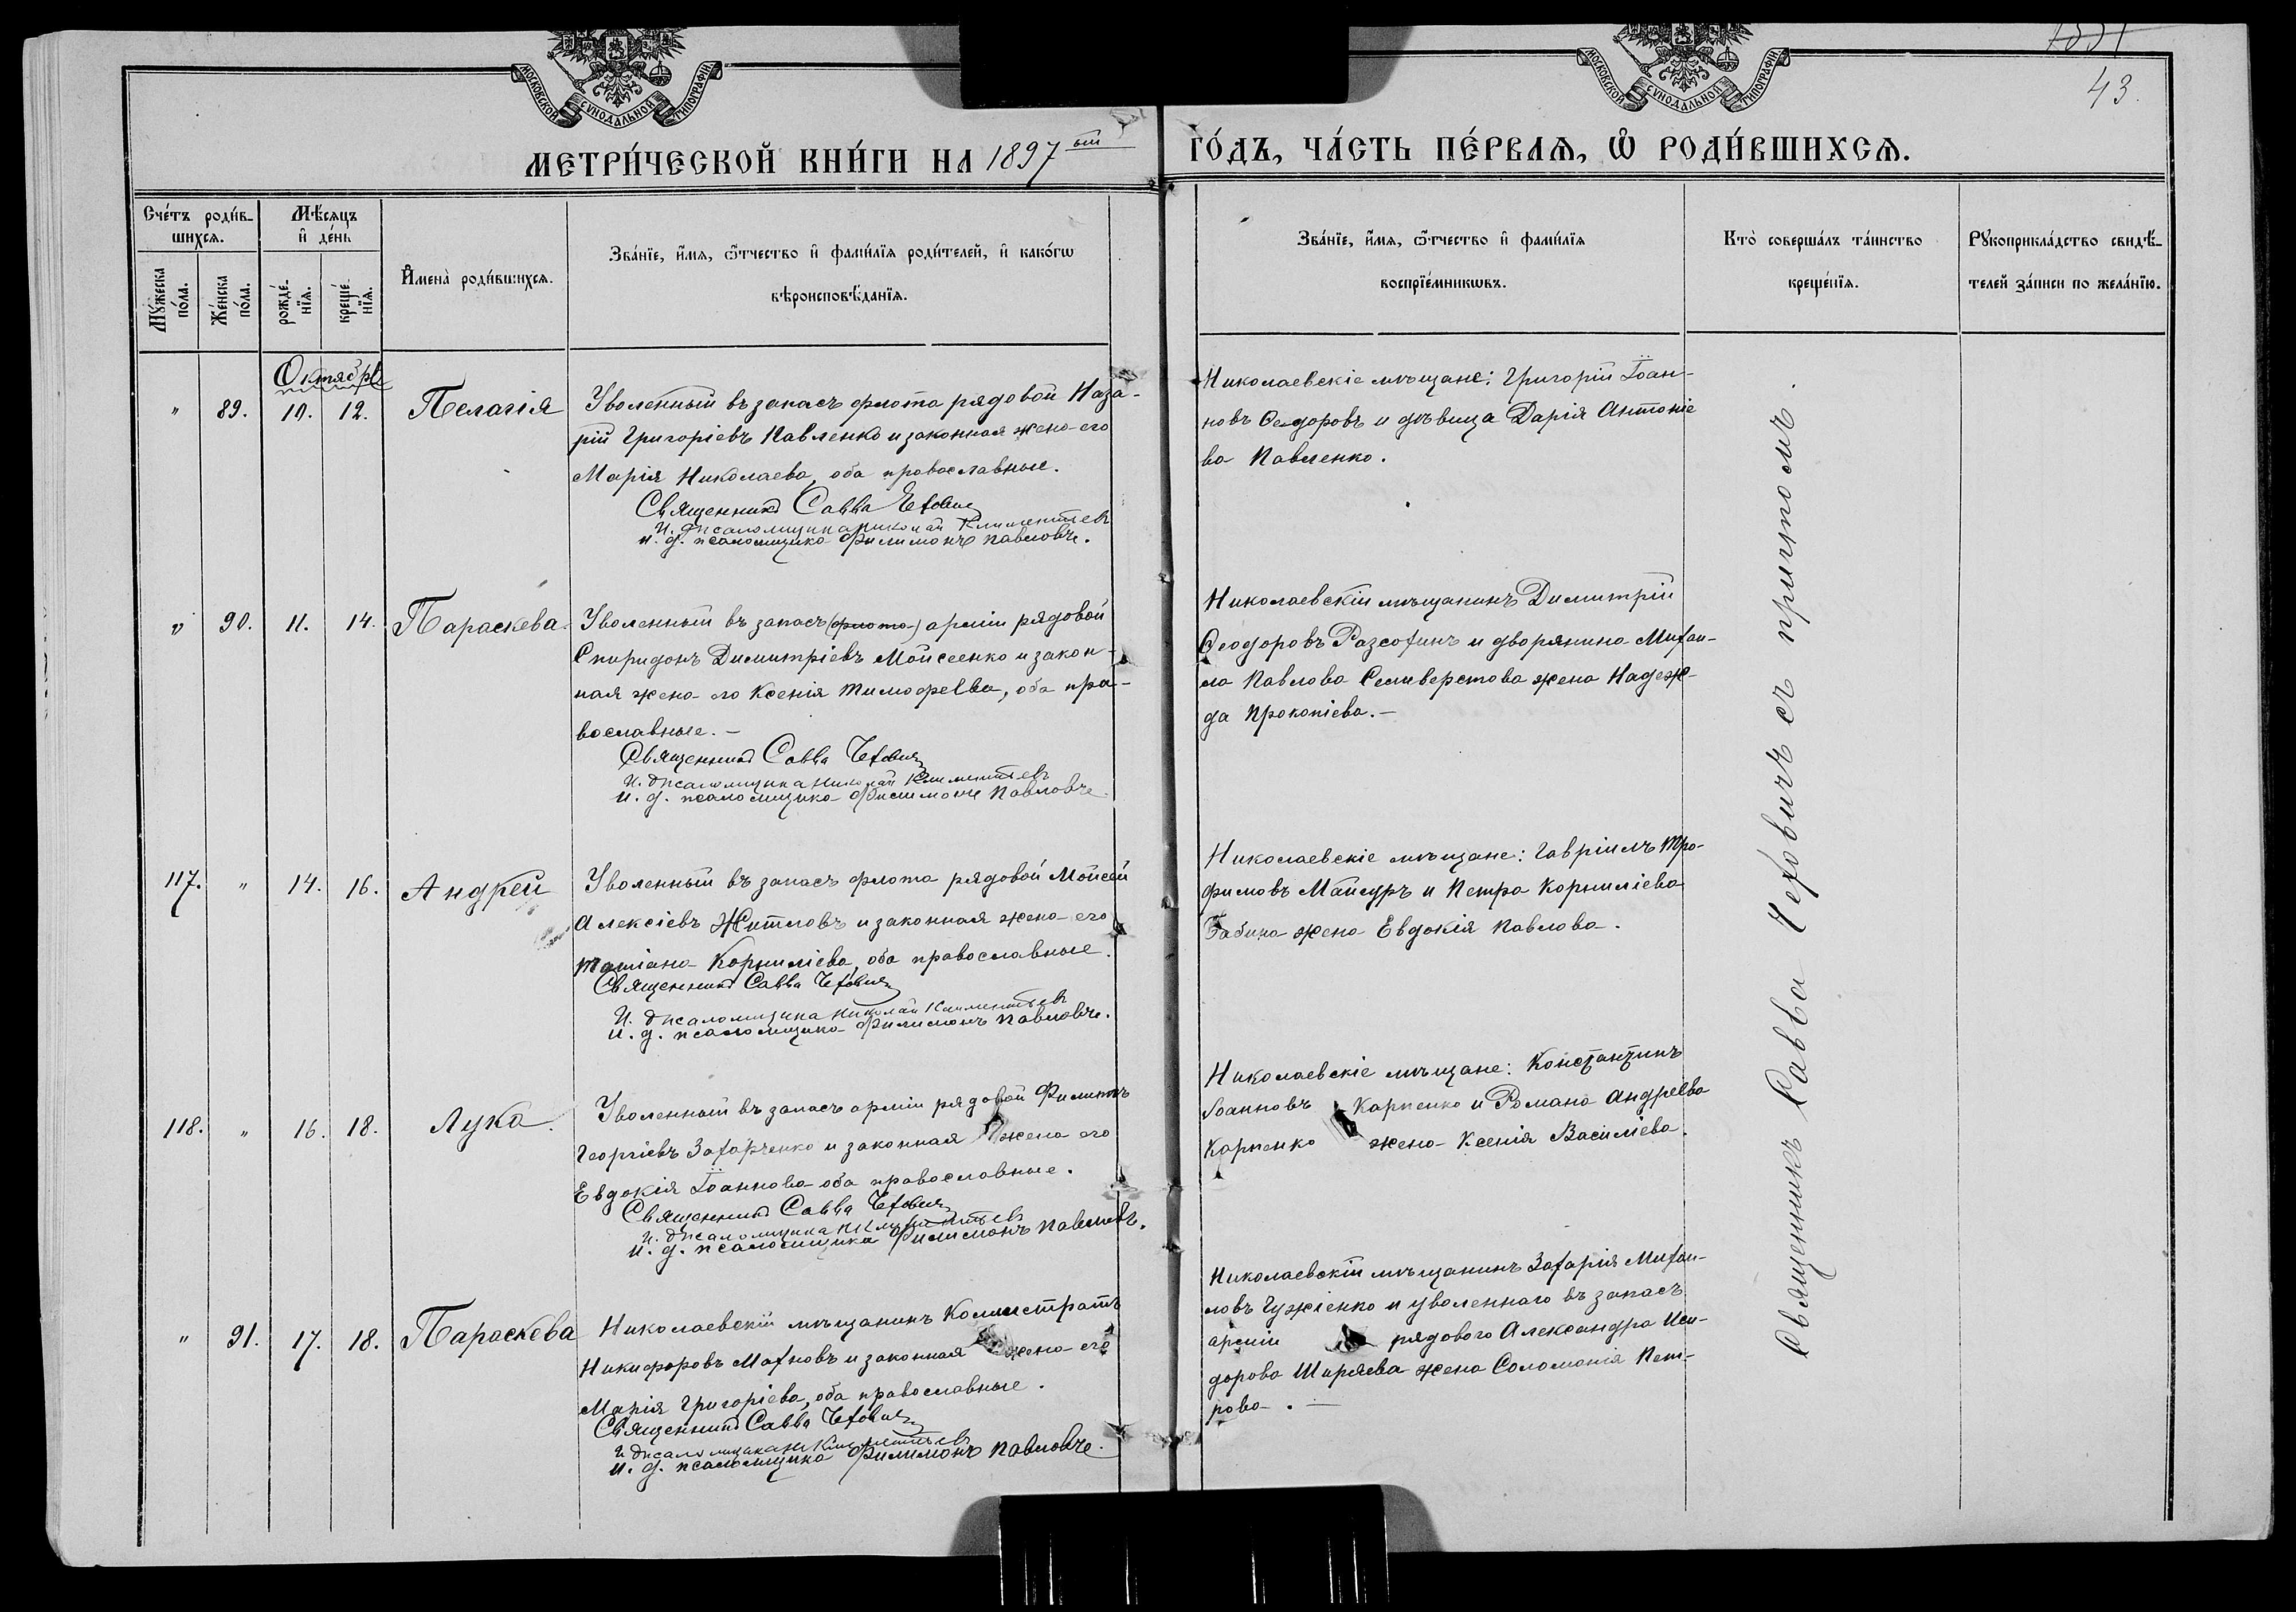 1551
43.
МОСКОВСКОЙ СѴНОДАЛЬНОЙ ТИПОГРАФІИ
МОСКОВСКОЙ СѴНОДАЛЬНОЙ ТИПОГРАФІИ
МЕТРИ́ЧЕСКОЙ КНИ́ГИ НА 1897ый
ГО́ДЪ, ЧА́СТЬ ПЕ́РВАѦ, Ѽ РОДИ́ВШИХСѦ.
Сче́тъ роди́в-
шихсѧ.
Мꙋ́жеска по́ла.
Же́нска по́ла.
Мѣ́сѧцъ
и҆ де́нь
рожде́-
нїѧ.
креще́-
нїѧ.
И҆мена̀ роди́вшихсѧ.
Зва́нїе, и҆́мѧ, ѻ҆́тчество и҆ фами́лїѧ роди́телей, и҆ како́гѡ
вѣроисповѣ́данїѧ.
Зва́нїе, и҆́мѧ, ѻ҆́тчество и҆ фами́лїѧ
воспрїе́мникѡвъ.
Кто̀ соверша́лъ та́инство
креще́нїѧ.
Рꙋкоприкла́дство свидѣ́-
телей за́писи по жела́нїю.
Октябрь
" 89. 10. 12. Пелагія
Уволенный въ запасъ флота рядовой Наза-
рій Григоріевъ Павленко и законная жена его
Марія Николаева, оба православные.
Священникъ Савва Чехович
И. д. псаломщика Николай Климентьев
и. д. псаломщика Филимонъ Павловъ.
Николаевскіе мѣщане: Григорій Іоан-
новъ Ѳеодоровъ и дѣвица Дарія Антоніе
ва Павленко.
" 90. 11. 14. Параскева.
Уволенный въ запасъ (флота) арміи рядовой
Спиридонъ Димитріевъ Мойсеенко и закон-
ная жена его Ксенія Тимофеева, оба пра-
вославные. —
Священникъ Савва Чехович
И. д. псаломщика Николай Климентьевъ
и. д. псаломщика Филимонъ Павловъ.
Николаевскій мѣщанинъ Димитрій
Ѳеодоровъ Разсохинъ и дворянина Михаи-
ла Павлова Селиверстова жена Надеж-
да Прокопіева. —
117. " 14. 16. Андрей
Уволенный въ запасъ флота рядовой Мойсей
Алексіевъ Житловъ и законная жена его
Татіана Корниліева, оба православные.
Священникъ Савва Чехович
И. д. псаломщика Николай Климентьевъ
и. д. псаломщика Филимонъ Павловъ.
Николаевскіе мѣщане: Гавріилъ Тро-
фимовъ Майсуръ и Петра Корниліева
Бабина жена Евдокія Павлова.
118. " 16. 18. Лука.
Уволенный въ запасъ арміи рядовой Филиппъ
Георгіевъ Захарченко и законная жена его
Евдокія Іоаннова оба православные.
Священникъ Савва Чехович
И. д. псаломщика Н Климентьевъ
и. д. псаломщика Филимонъ Павловъ.
Николаевскіе мѣщане: Константинъ
Іоанновъ Карпенко и Романа Андреева
Карпенко жена Ксенія Василіева.
" 91. 17. 18. Параскева
Николаевскій мѣщанинъ Каллистратъ
Никифоровъ Махновъ и законная жена его
Марія Григоріева, оба православные.
Священникъ Савва Чехович
И. д. псаломщика Н Климентьевъ
и. д. псаломщика Филимонъ Павловъ.
Николаевскій мѣщанинъ Захарія Михаи-
ловъ Гужіенко и уволеннаго въ запасъ
арміи рядового Александра Иси-
дорова Ширяева жена Соломонія Пет-
рова. —
Священникъ Савва Чеховичъ съ причтомъ.